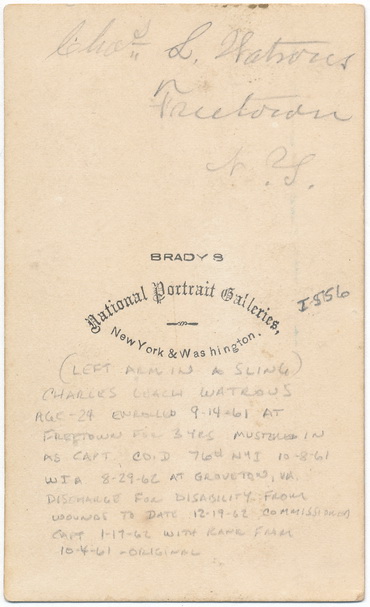 Chas. L. Watrous
Freetown
N.Y.
BRADYS
National Portrait Galleries,
New York & Washington.
I-556
(LEFT ARM IN A SLING)
CHARLES LEACH WATROUS
AGE-24 ENROLLED 9-14-61 AT
FREETOWN FOR 3 YRS MUSTERED IN
AS CAPT. CO.D 76th NYI 10-8-61
WIA 8-29-62 AT GROVETON, VA.
DISCHARGE FOR DISABILITY FROM
WOUNDS TO DATE 12-19-62 COMMISSIONED
CAPT 1-17-62 WITH RANK FROM
10-4-61 - ORIGINAL